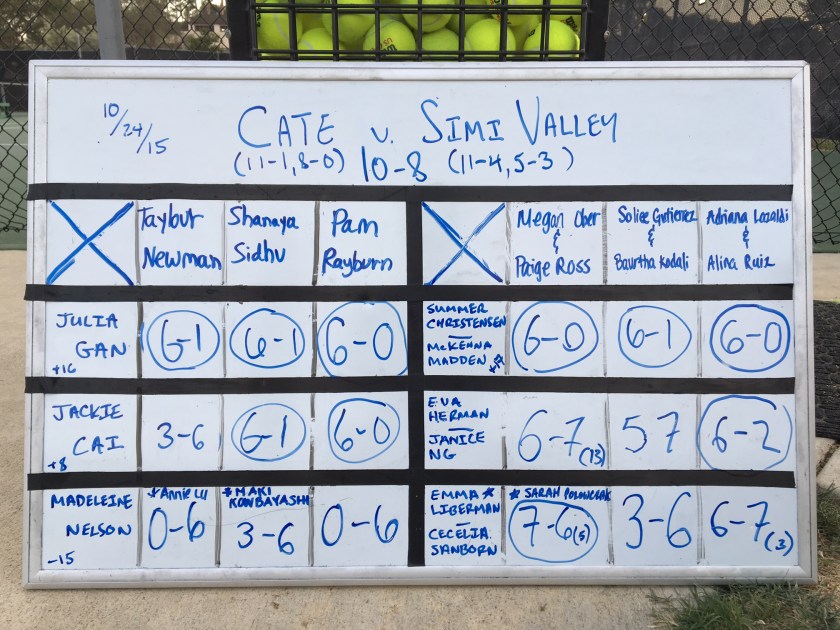 10/24/15
CATE v. SIMI VALLEY
(11-1, 8-0) 10-8 (11-4, 5-3)
Taybur Newman
Shanaya Sidhu
Pam Rayburn
Megan Ober & Paige Ross
Solice Gutierrez & Baurtha Kodali
Adriana Lazaldi & Alina Ruiz
JULIA GAN +16
6-1
6-1
6-0
SUMMER CHRISTENSEN – McKENNA MADDEN
6-0
6-1
6-0
JACKIE CAI +8
3-6
6-1
6-0
EVA HERMAN – JANICE NG
6-7(13)
5 7
6-2
MADELEINE NELSON -15
*Annie LU
0-6
*MAKI KOWBAYASHI
3-6
0-6
EMMA* LIBERMAN – CECELIA SANBORN
* SARAH
7-6(5)
3-6
6-7(3)